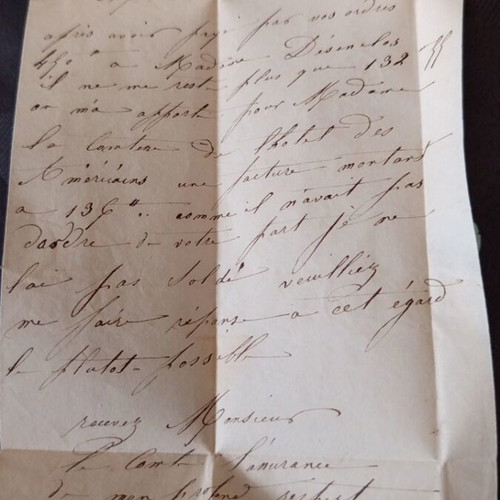 après avoir payé par vos ordres
450" a Madame Désenclos
il ne me reste plus que 132" 55
on m'a apporté pour Madame
la Comtesse de l'hotel des
Américains une facture montant
a 136".. comme il n'avait pas
d'ordre de votre part je ne
l'ai pas soldé veuilliez
me faire réponse a cet égard
le plutot possible
recevez Monsieur
le Comte l'assurance
de mon profond respect